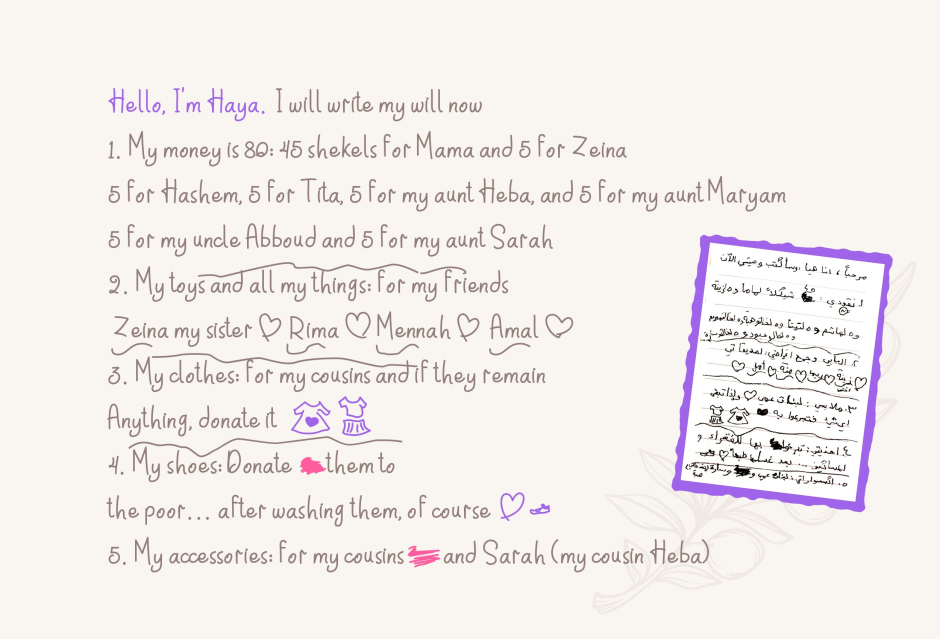 Hello, I'm Haya. I will write my will now
1. My money is 80: 45 shekels for Mama and 5 for Zeina
5 for Hashem, 5 for Tita, 5 for my aunt Heba, and 5 for my aunt Maryam
5 for my uncle Abboud and 5 for my aunt Sarah
2. My toys and all my things: for my friends
Zeina my sister ♡ Rima ♡ Mennah ♡ Amal ♡
3. My clothes: for my cousins and if they remain
Anything, donate it
4. My shoes: Donate them to
the poor... after washing them, of course ♡
5. My accessories: for my cousins and Sarah (my cousin Heba)
مرحباً، أنا هيا، وسأكتب وصيتي الآن
١. نقودي: ٤٥ شيكلاً لماما و٥ لزينة
و٥ لهاشم و٥ لتيتا و٥ لخالتو هبة و٥ لخالتو مريم
و٥ لخالو عبود و٥ لخالتو سارة
٢. ألعابي وجميع أغراضي: لصديقاتي
زينة ريما منة أمل
٣. ملابسي: لبنات عمي وإذا تبقى
أي شيء فتبرعوا به
٤. أحذيتي: تبرعوا بها للفقراء و
المساكين... بعد غسلها طبعاً
٥. اكسسواراتي: لبنات عمي وسارة